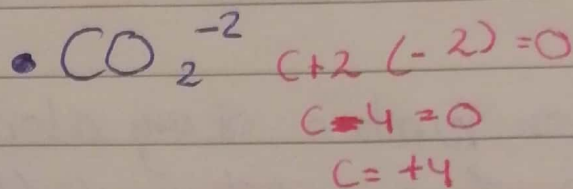 • CO₂⁻² C+2 (-2) =0
C-4 =0
C= +4